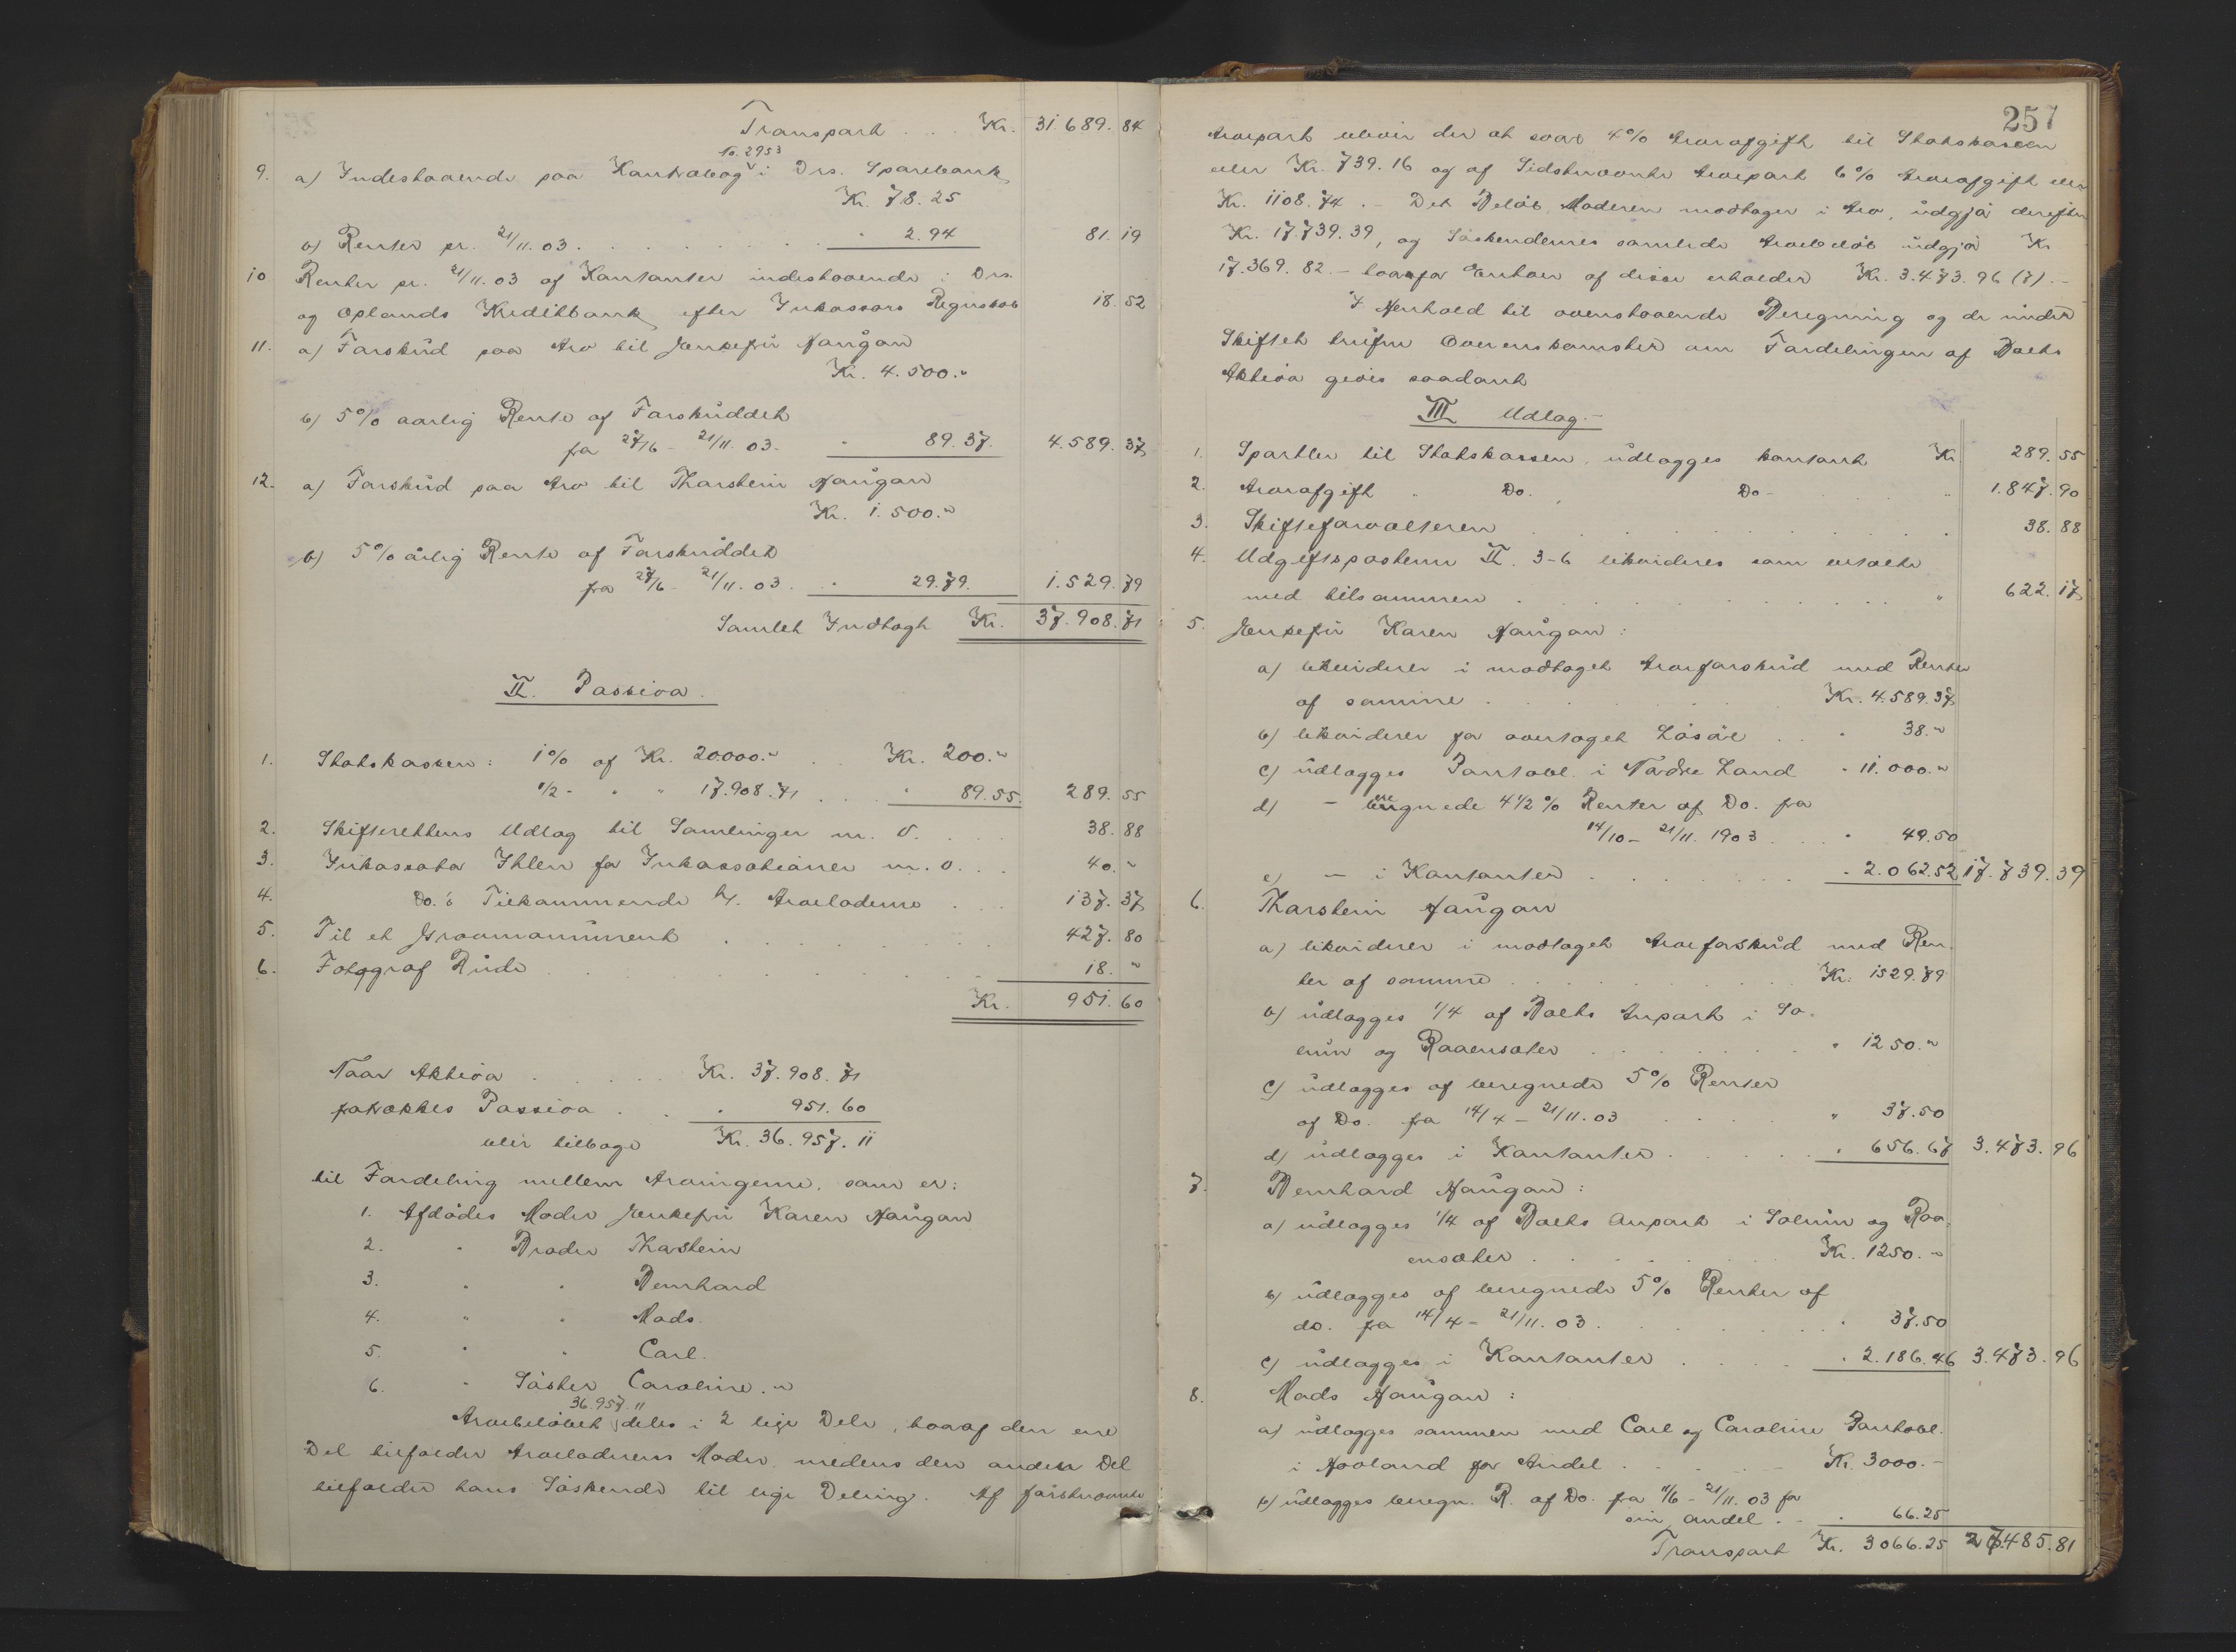 Transport . . . Kr. 31.689. 84
No. 2953
9. a) Indestaaende paa Kontrabog i Drs. Sparebank
Kr. 78.25
b) Renter pr. 21/11.03 . . . " 2.94 81. 19
10 Renter pr. 21/11.03 af Kontanter indestaaende i Drs.
og Oplands Kreditbank efter Inkassors Regnskab 18. 52
11. a) Forskud paa Arv til Enkefru Haugan
Kr. 4.500."
b) 5% aarlig Rente af Forskuddet
fra 27/6 - 21/11.03. " 89.37. 4.589. 37
12. a) Forskud paa Arv til Thorstein Haugan
Kr. 1.500."
b) 5% årlig Rente af Forskuddet
fra 27/6 - 21/11.03. . " 29.79. 1.529. 79
Samlet Indtægt Kr. 37.908. 71
II. Passiva.
1. Statskassen: 1% af Kr. 20.000." . . Kr. 200."
1/2 - " " 17.908.71 . . . " 89.55. 289. 55
2. Skifterettens Udlæg til Samlinger m. v. . . . 38. 88
3. Inkassator Ihlen for Inkassationer m. v. . . 40. "
4. Do. : Tilkommende h/. Arveladerne . . . 137. 37
5. Til et Gravmonument . . . 427. 80
6. Fotograf Rude . . . 18. "
Kr. 951. 60
Naar Aktiva . . . Kr. 37.908. 71
fratrækkes Passiva . . . " 951. 60
blir tilbage Kr. 36.957. 11
til Fordeling mellem Arvingerne, som er:
1. Afdødes Moder Enkefru Karen Haugan
2. " Broder Thorstein
3. " " Bernhard
4. " " Mads.
5. " " Carl.
6. " Søster Caroline."
36.957.11
Arvebeløbet deles i 2 lige Dele, hvoraf den ene
Del tilfalder Arveladerens Moder medens den anden Del
tilfalder hans Søskende til lige Deling. Af førstnævnte
257
Arvepart bliver der at svare 4% Arveafgift til Statskassen
eller Kr. 739.16 og af Sidstnævnte Arvepart 6% Arveafgift eller
Kr. 1108.74. - Det Beløb Moderen modtager i Arv, udgjør derefter
Kr. 17.739.39, og Søskendenes samlede Arvebeløb udgjør Kr
17.369.82. - hvorfor Enhver af disse erholder Kr. 3.473.96 (7). -
I Henhold til ovenstaaende Beregning og de under
Skiftet trufne Overenskomster om Fordelingen af Boets
Aktiva gives saadant
III Udlæg. -
1. Sportler til Statskassen, udlægges kontant Kr. 289. 55
2. Arveafgift " Do. , Do - . . . " 1.847. 90
3. Skifteforvalteren . . . 38. 88
4. Udgiftsposterne II. 3-6 likvideres som betalte
med tilsammen . . . " 622. 17
5. Enkefru Karen Haugan:
a) likviderer i modtaget Arveforskud med Renter
af samme . . . Kr. 4.589.37
b) likviderer for overtaget Løsøre . . . " 38."
c) udlægges Pantobl. i Nordre Land " 11.000."
d) - beregnede 4 1/2% Renter af Do. fra
14/10 - 21/11. 1903 . . . " 49.50
e) - i Kontanter . . . " 2.062.52 17.739. 39
6. Thorstein Haugan
a) likviderer i modtaget Arveforskud med Ren-
ter af samme . . . Kr. 1529.79
b) udlægges 1/4 af Boets Anpart i So-
lum og Raaensæter . . . " 1250."
c) udlægges af beregnede 5% Renter
af Do. fra 14/4 - 21/11.03 . . . " 37.50
d) udlægges i Kontanter . . . " 656.67 3.473. 96
7. Bernhard Haugan:
a) udlægges 1/4 af Boets Anpart i Solum og Raa-
ensæter . . . Kr. 1250. "
b) udlægges af beregnede 5% Renter af
do. fra 14/4 - 21/11.03. . . . " 37.50
c) udlægges i Kontanter . . . " 2.186.46 3.473. 96
8. Mads Haugan:
a) udlægges sammen med Carl og Caroline Pantobl.
i Hovland for Andel . . . Kr. 3000. -
b) udlægges beregn. R. af Do. fra 11/6 - 21/11.03 for
sin andel . - . " 66.25
Transport Kr. 3066.25 26.485. 81